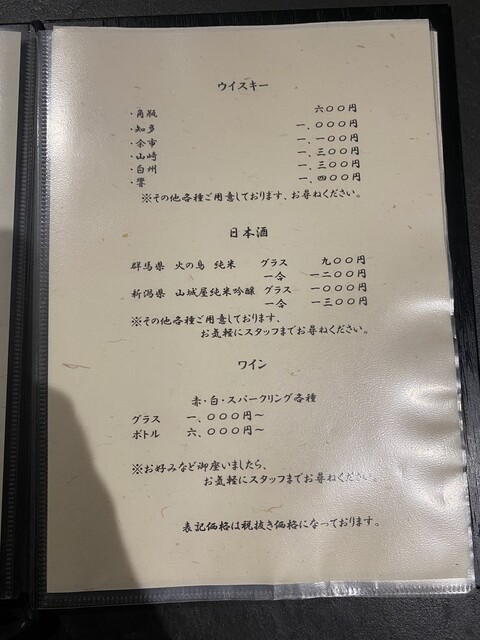 ウイスキー
・角瓶 六〇〇円
・知多 一、〇〇〇円
・余市 一、一〇〇円
・山崎 一、三〇〇円
・白州 一、三〇〇円
・響 一、四〇〇円
※その他各種ご用意しております、お尋ねください。
日本酒
群馬県 火の鳥 純米 グラス 九〇〇円
一合 一二〇〇円
新潟県 山城屋純米吟醸 グラス 一〇〇〇円
一合 一三〇〇円
※その他各種ご用意しております、
お気軽にスタッフまでお尋ねください。
ワイン
赤・白・スパークリング各種
グラス 一、〇〇〇円～
ボトル 六、〇〇〇円～
※お好みなど御座いましたら、
お気軽にスタッフまでお尋ねください。
表記価格は税抜き価格になっております。